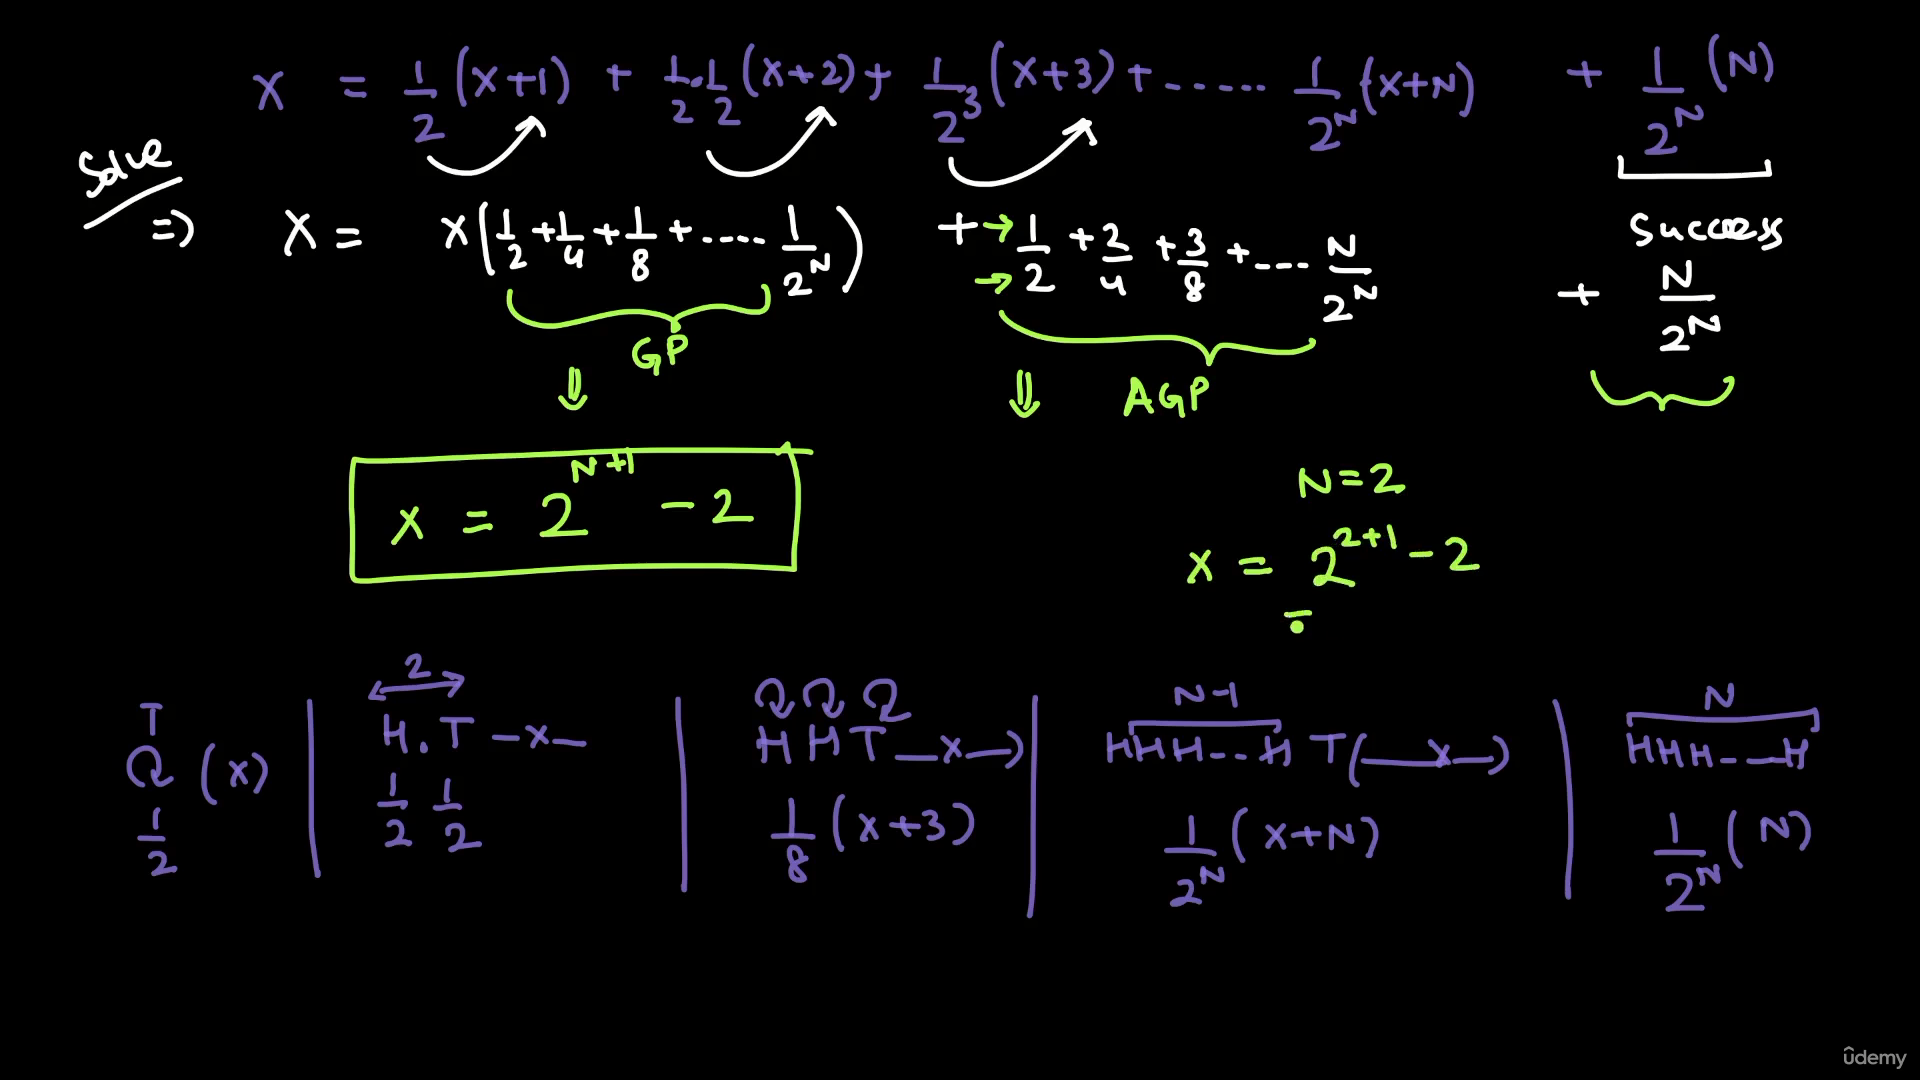 x = 1/2 (x+1) + 1/2 . 1/2 (x+2) + 1/2^3 (x+3) + ...... 1/2^N (x+N) + 1/2^N (N)
Solve
=> x = x(1/2 + 1/4 + 1/8 + ..... 1/2^N) + → 1/2 + 2/4 + 3/8 + .... N/2^N + N/2^N
Success
GP
AGP
x = 2^(N+1) - 2
N=2
x = 2^(2+1) - 2
=
T
(x)
1/2
2
H.T —x—
1/2 1/2
HHT —x—)
1/8 (x+3)
N-1
HHH--H T(—x—)
1/2^N (x+N)
N
HHH-—H
1/2^N (N)
ûdemy